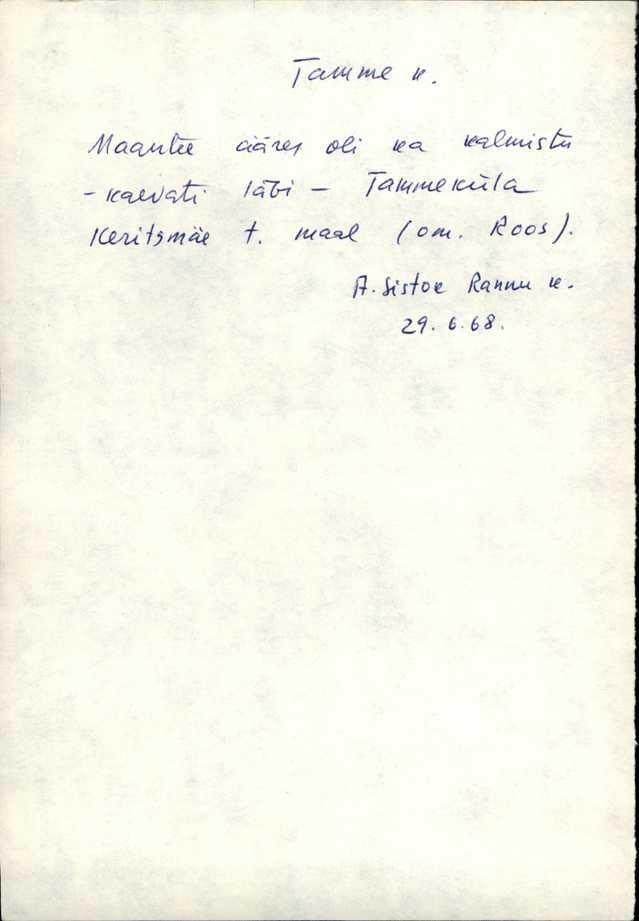 Tamme k.
Maantee ääres oli ka kalmistu
- kaevati läbi - Tammeküla
Keritsmäe t. maal (om. Roos).
A. Sistok Rannu k.
29. 6. 68.